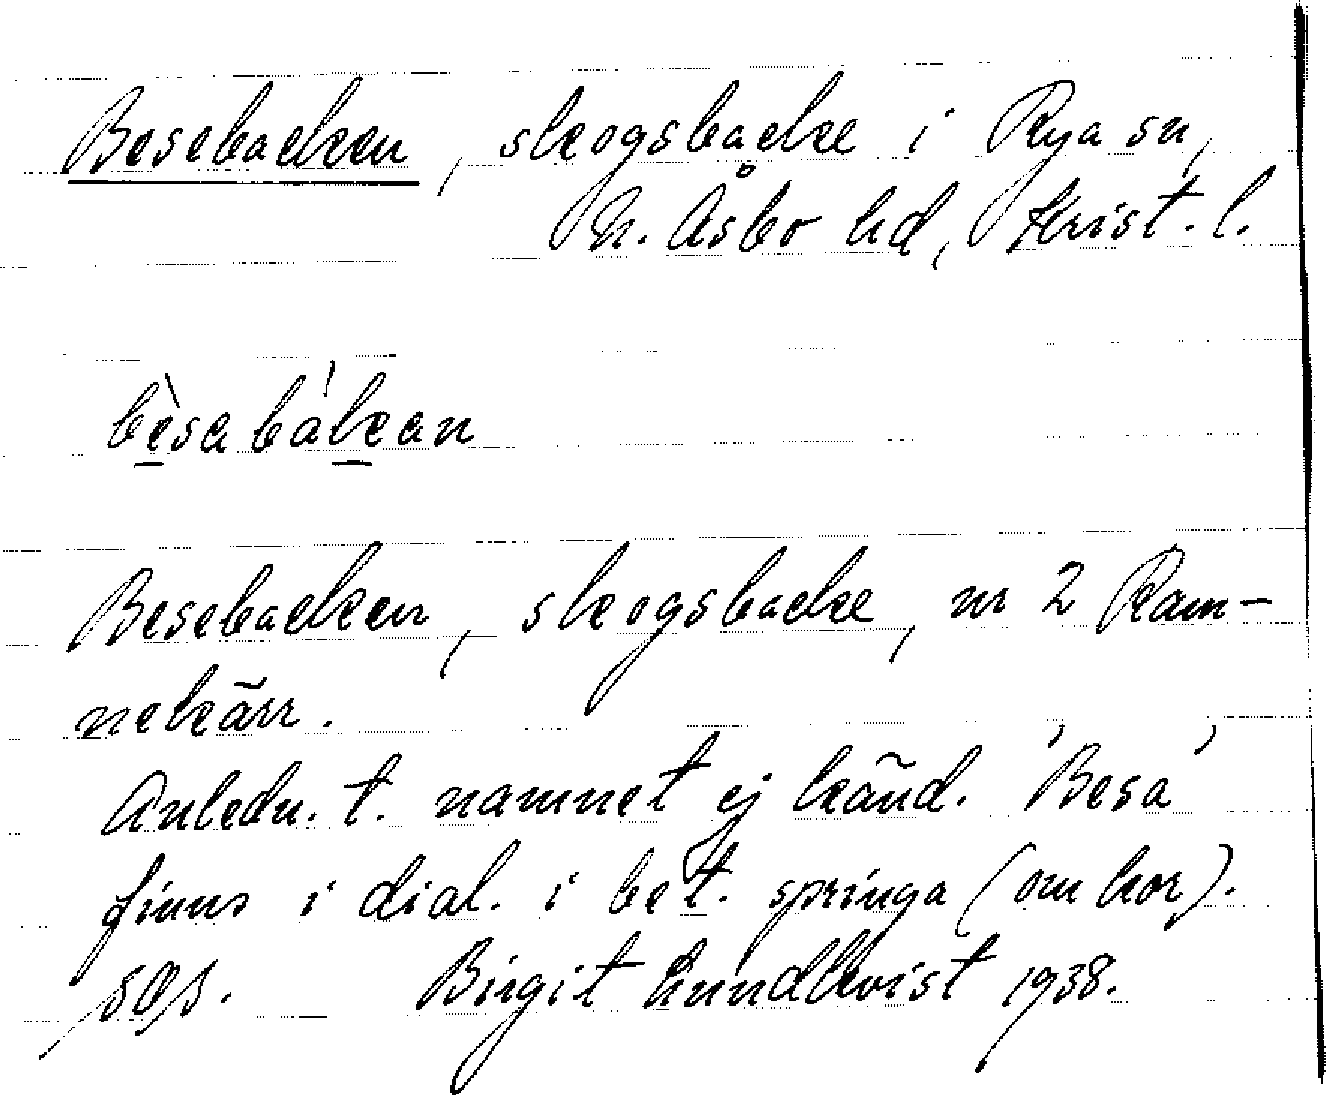 Besebacken, skogsbacke i Rya sn,
N. Åsbo hd, Krist. l.
bèsabákan
Besebacken, skogsbacke, nr 2 Ram-
nekärr.
Anledn. t. namnet ej känd. 'Besa'
finns i dial. i bet. springa (om kor).
SOS. Birgit Lundkvist 1938.